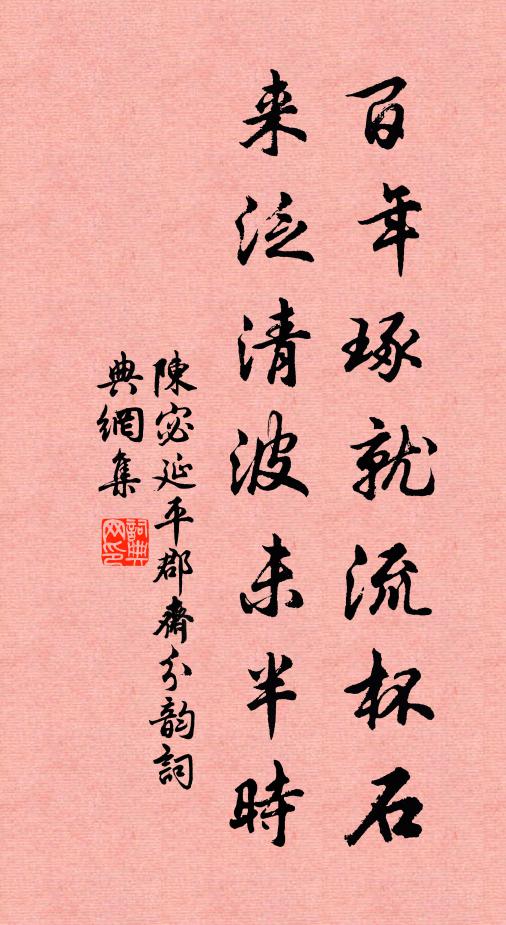 百年琢就流杯石
来泛清波未半時
陳宓延平郡齋分韵詞
典網集
詞典
网印